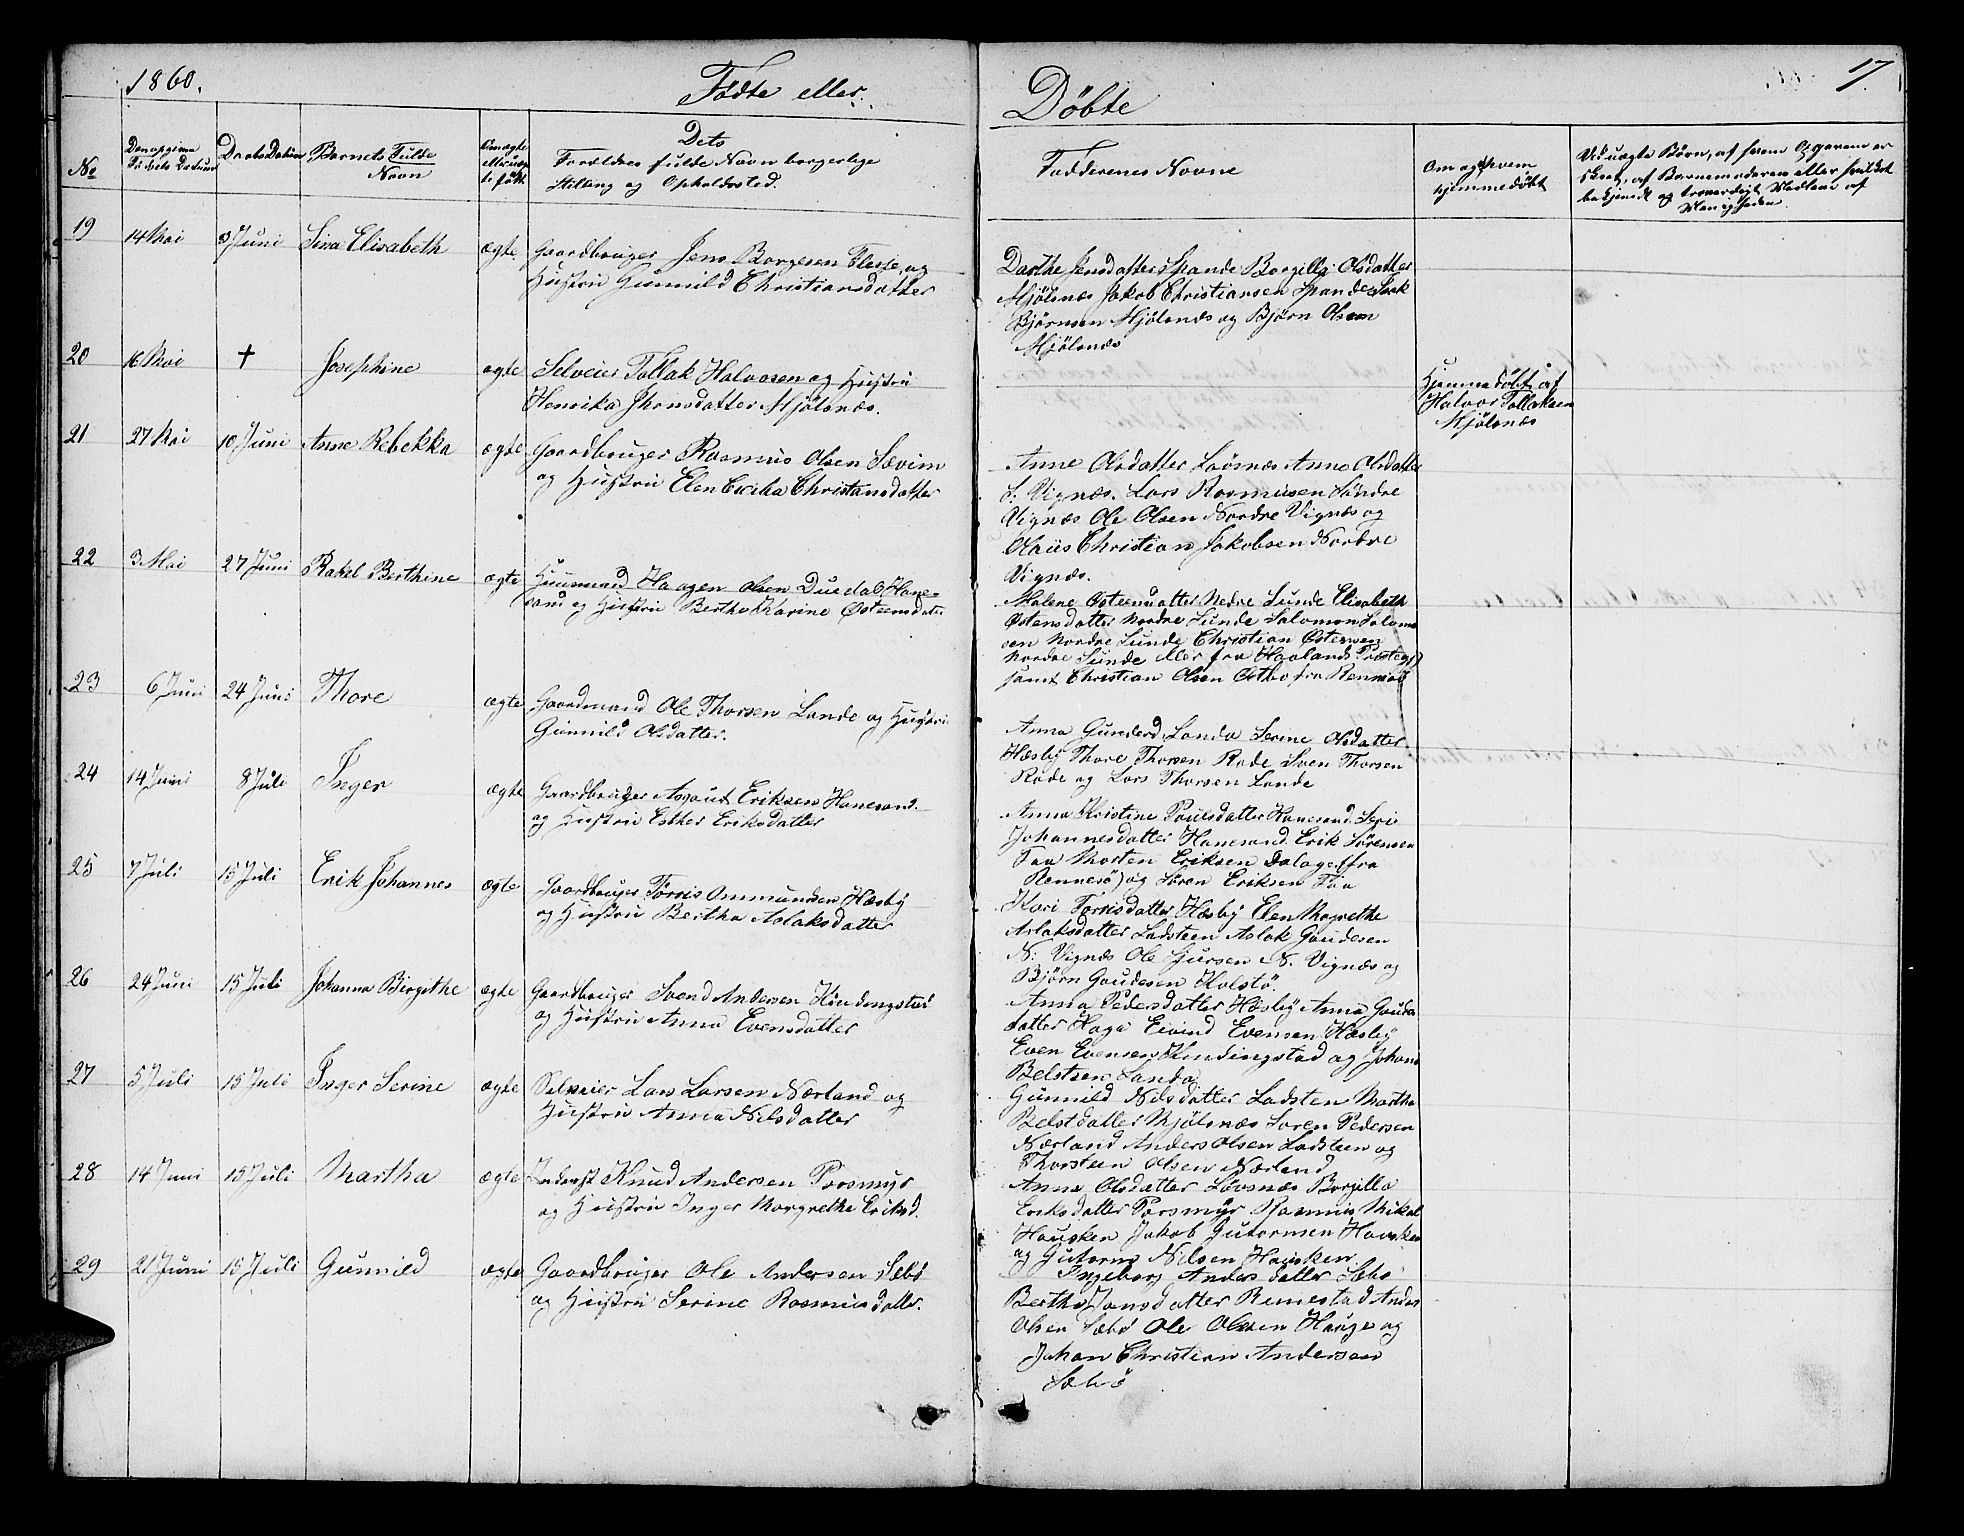 1860.
Fødte eller
Døbte
17.
No
Daabs Datum
Barnets Fulde
Navn
Dets
Forældres fulde Navn borgerlige
Stilling og Opholdssted.
Fadderenes Navne
Om og af hvem
hjemmedøbt
Ved uægte Børn, af hvem Opgaven er
skeet, af Barnemoderen eller hvilket
bekjendt og troværdigt Medlem af
Menigheden.
19 14 Mai 3 Juni Sina Elisabeth ægte Gaardbruger Jens Borgesen og
Hustru Gunnild Christiansdatter
Dorthe Jensdatter Spande Borgilla Olsdatter
Mjølsnæs Jakob Christiansen Spande
Bjørnsen Mjølsnæs og Bjørn Olsen
Mjølsnæs
20 16 Mai + Josephine ægte Selveier Tollak Halvorsen og Hustru
Henrika Jhonsdatter Mjølsnæs.
Hjemmedøbt af
Halvor Tollaksen
Mjølsnæs
21 27 Mai 10 Juni Anne Rebekka ægte Gaardbruger Rasmus Olsen Sævim
og Hustru Elen Christiansdatter
Anne Olsdatter Løvsnæs Anne Olsdatter
S: Vignæs. Lars Rasmusen Søndre
Vignæs Ole Olsen Nordre Vignæs og
Olaus Christian Jakobsen Nordre
Vignæs.
22 3 Mai 27 Juni Rakel Berthine ægte Huusmand Haagen Olsen Duedal Hane-
sand og Hustru Bertha Karine Østensdatr
Malene Østensdatter Nedre Sunde Elisabeth
Østensdatter Nordre Sunde Salomon Salomo
sen Nordre Sunde Christian Østensen
Nordre Sunde alle fra Haalands Præstegj
samt Christian Olsen Østbø fra Rennesø
23 6 Juni 24 Juni Thore ægte Gaardmand Ole Thorsen Lande og Hustru
Gunnild Olsdatter.
Anna Gunderd. Landa Serine Olsdatter
Hæsby Thore Thorsen Rade Sven Thorsen
Rade og Lars Thorsen Lande
24 14 Juni 8 Juli Inger ægte Gaardbruger Asgaut Eriksen Hanesand
og Hustru Esther Eriksdatter
Anna Kristine Poulsdatter Hanesand. Seri
Johannesdatter Hanesand. Erik Sørensen
Faa Morten Eriksen Dalage (fra
Rennesø) og Søren Eriksen Faa
25 7 Juli 15 Juli Erik Johannes ægte Gaardbruger Tørris Ommundsen Hæsby
og Hustru Bertha Aslaksdatter
Kari Tørrisdatter Hæsby Elen Magrethe
Aslaksdatter Ladsteen Aslak Gaudesen
N: Vignæs Ole Sjursen N. Vignæs og
Bjørn Gaudesen Holstø.
26 24 Juni 15 Juli Johanna Birgithe ægte Gaardbruger Svend Andersen Kindingstad
og Hustru Anna Evensdatter
Anna Pedersdatter Hæsby Anna Gaudes
datter Haga Eivind Evensen Hæsby
Even Evensen Kindingstad og Johan
Belstsen Landa
27 5 Juli 15 Juli Inger Serine ægte Selveier Lars Larsen Nærland og
Hustru Anna Nilsdatter
Gunnild Nilsdatter Ladsten Martha
Belstdatter Mjølsnæs Søren Pedersen
Nærland Anders Olsen Ladsteen og
Thorsteen Olsen Nærland
28 14 Juni 15 Juli Martha ægte Knud Andersen Porsmyr
og Hustru Inger Margrethe Eriksd.
Anna Olsdatter Løvsnæs Borgilla
Eriksdatter Porsmyr Rasmus Mikal
Hausken Jakob Gutormsen Hausken
og Gutorm Nilsen Hausken.
29 21 Juni 15 Juli Gunnild ægte Gaardbruger Ole Andersen Sæbø
og Hustru Serine Rasmusdatter.
Ingeborg Andersdatter Sæbø
Bertha Jansdatter Rennestad Anders
Olsen Sæbø Ole Olsen Hauge og
Johan Christian Andersen
Sæbø